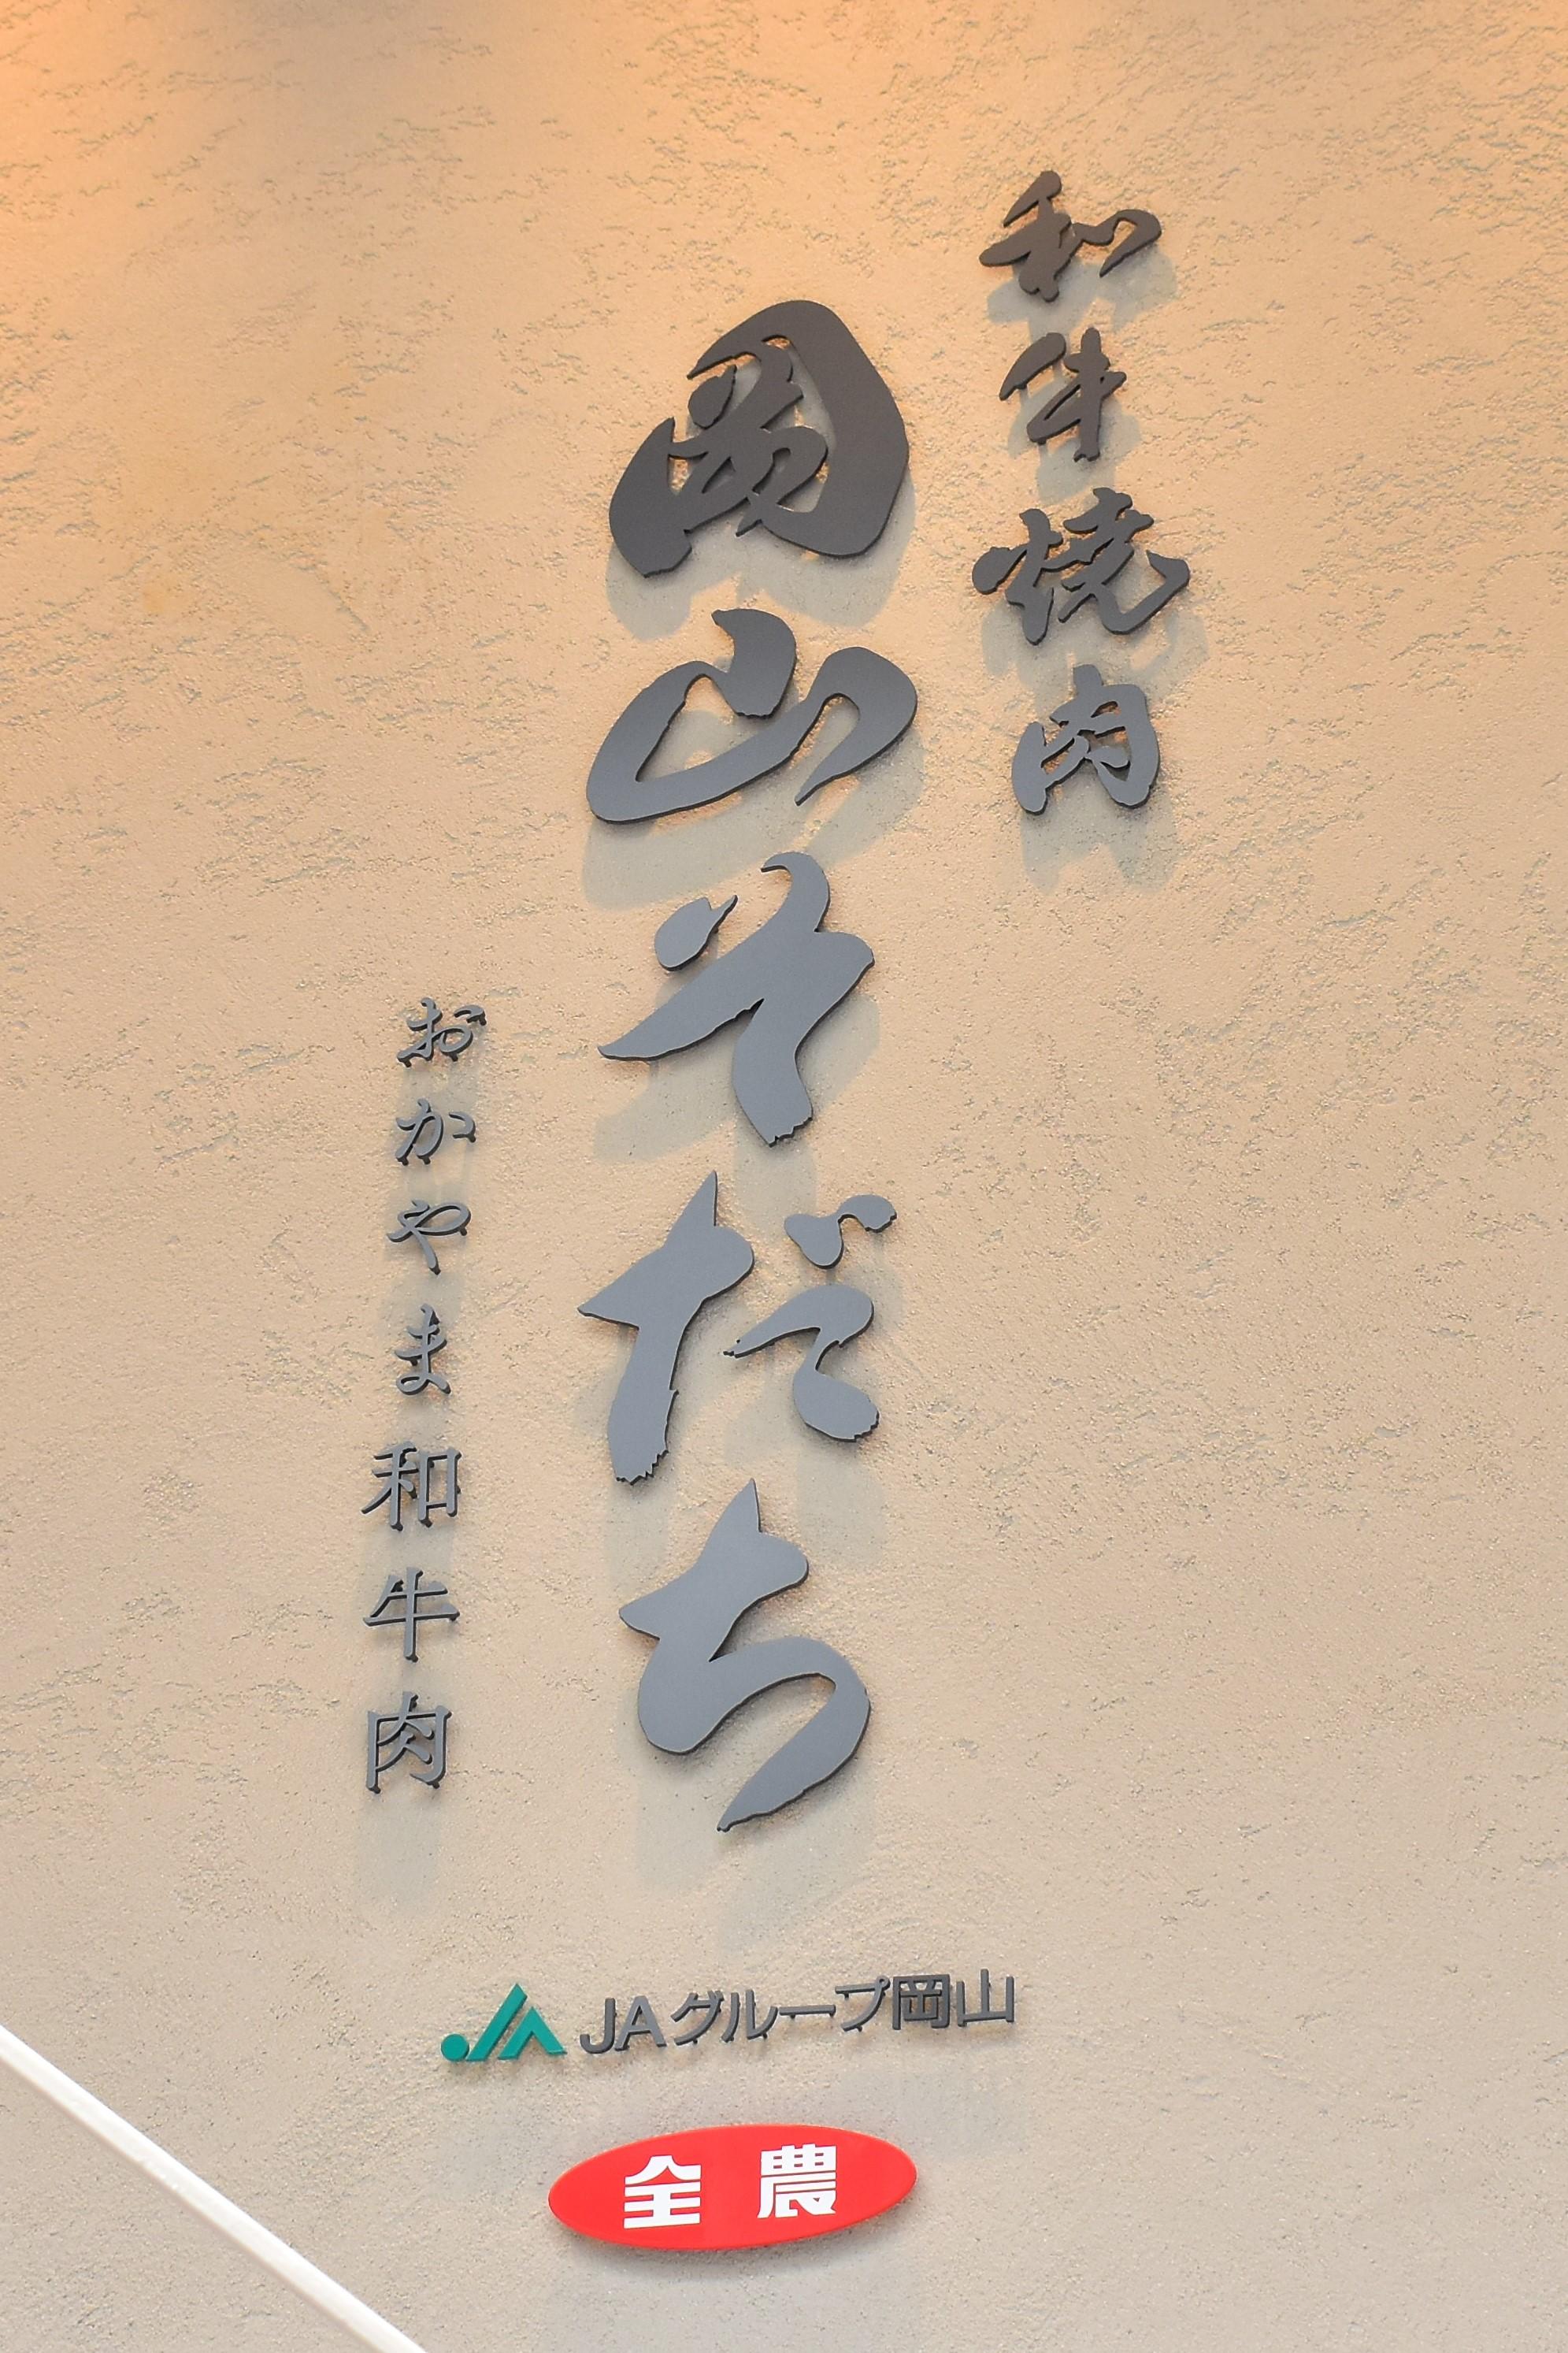 和牛焼肉
岡山そだち
おかやま和牛肉
JAグループ岡山
全農